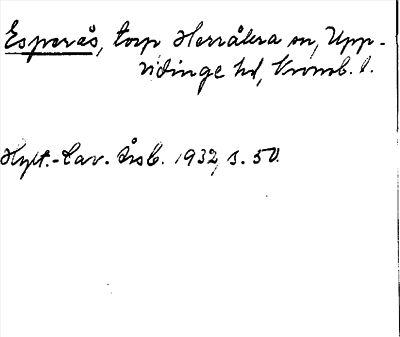 Esperås, torp Herråkra sn, Upp-
vidinge hd, Kronob. l.
Hylt.-Cav. Årsb. 1932, s. 50.